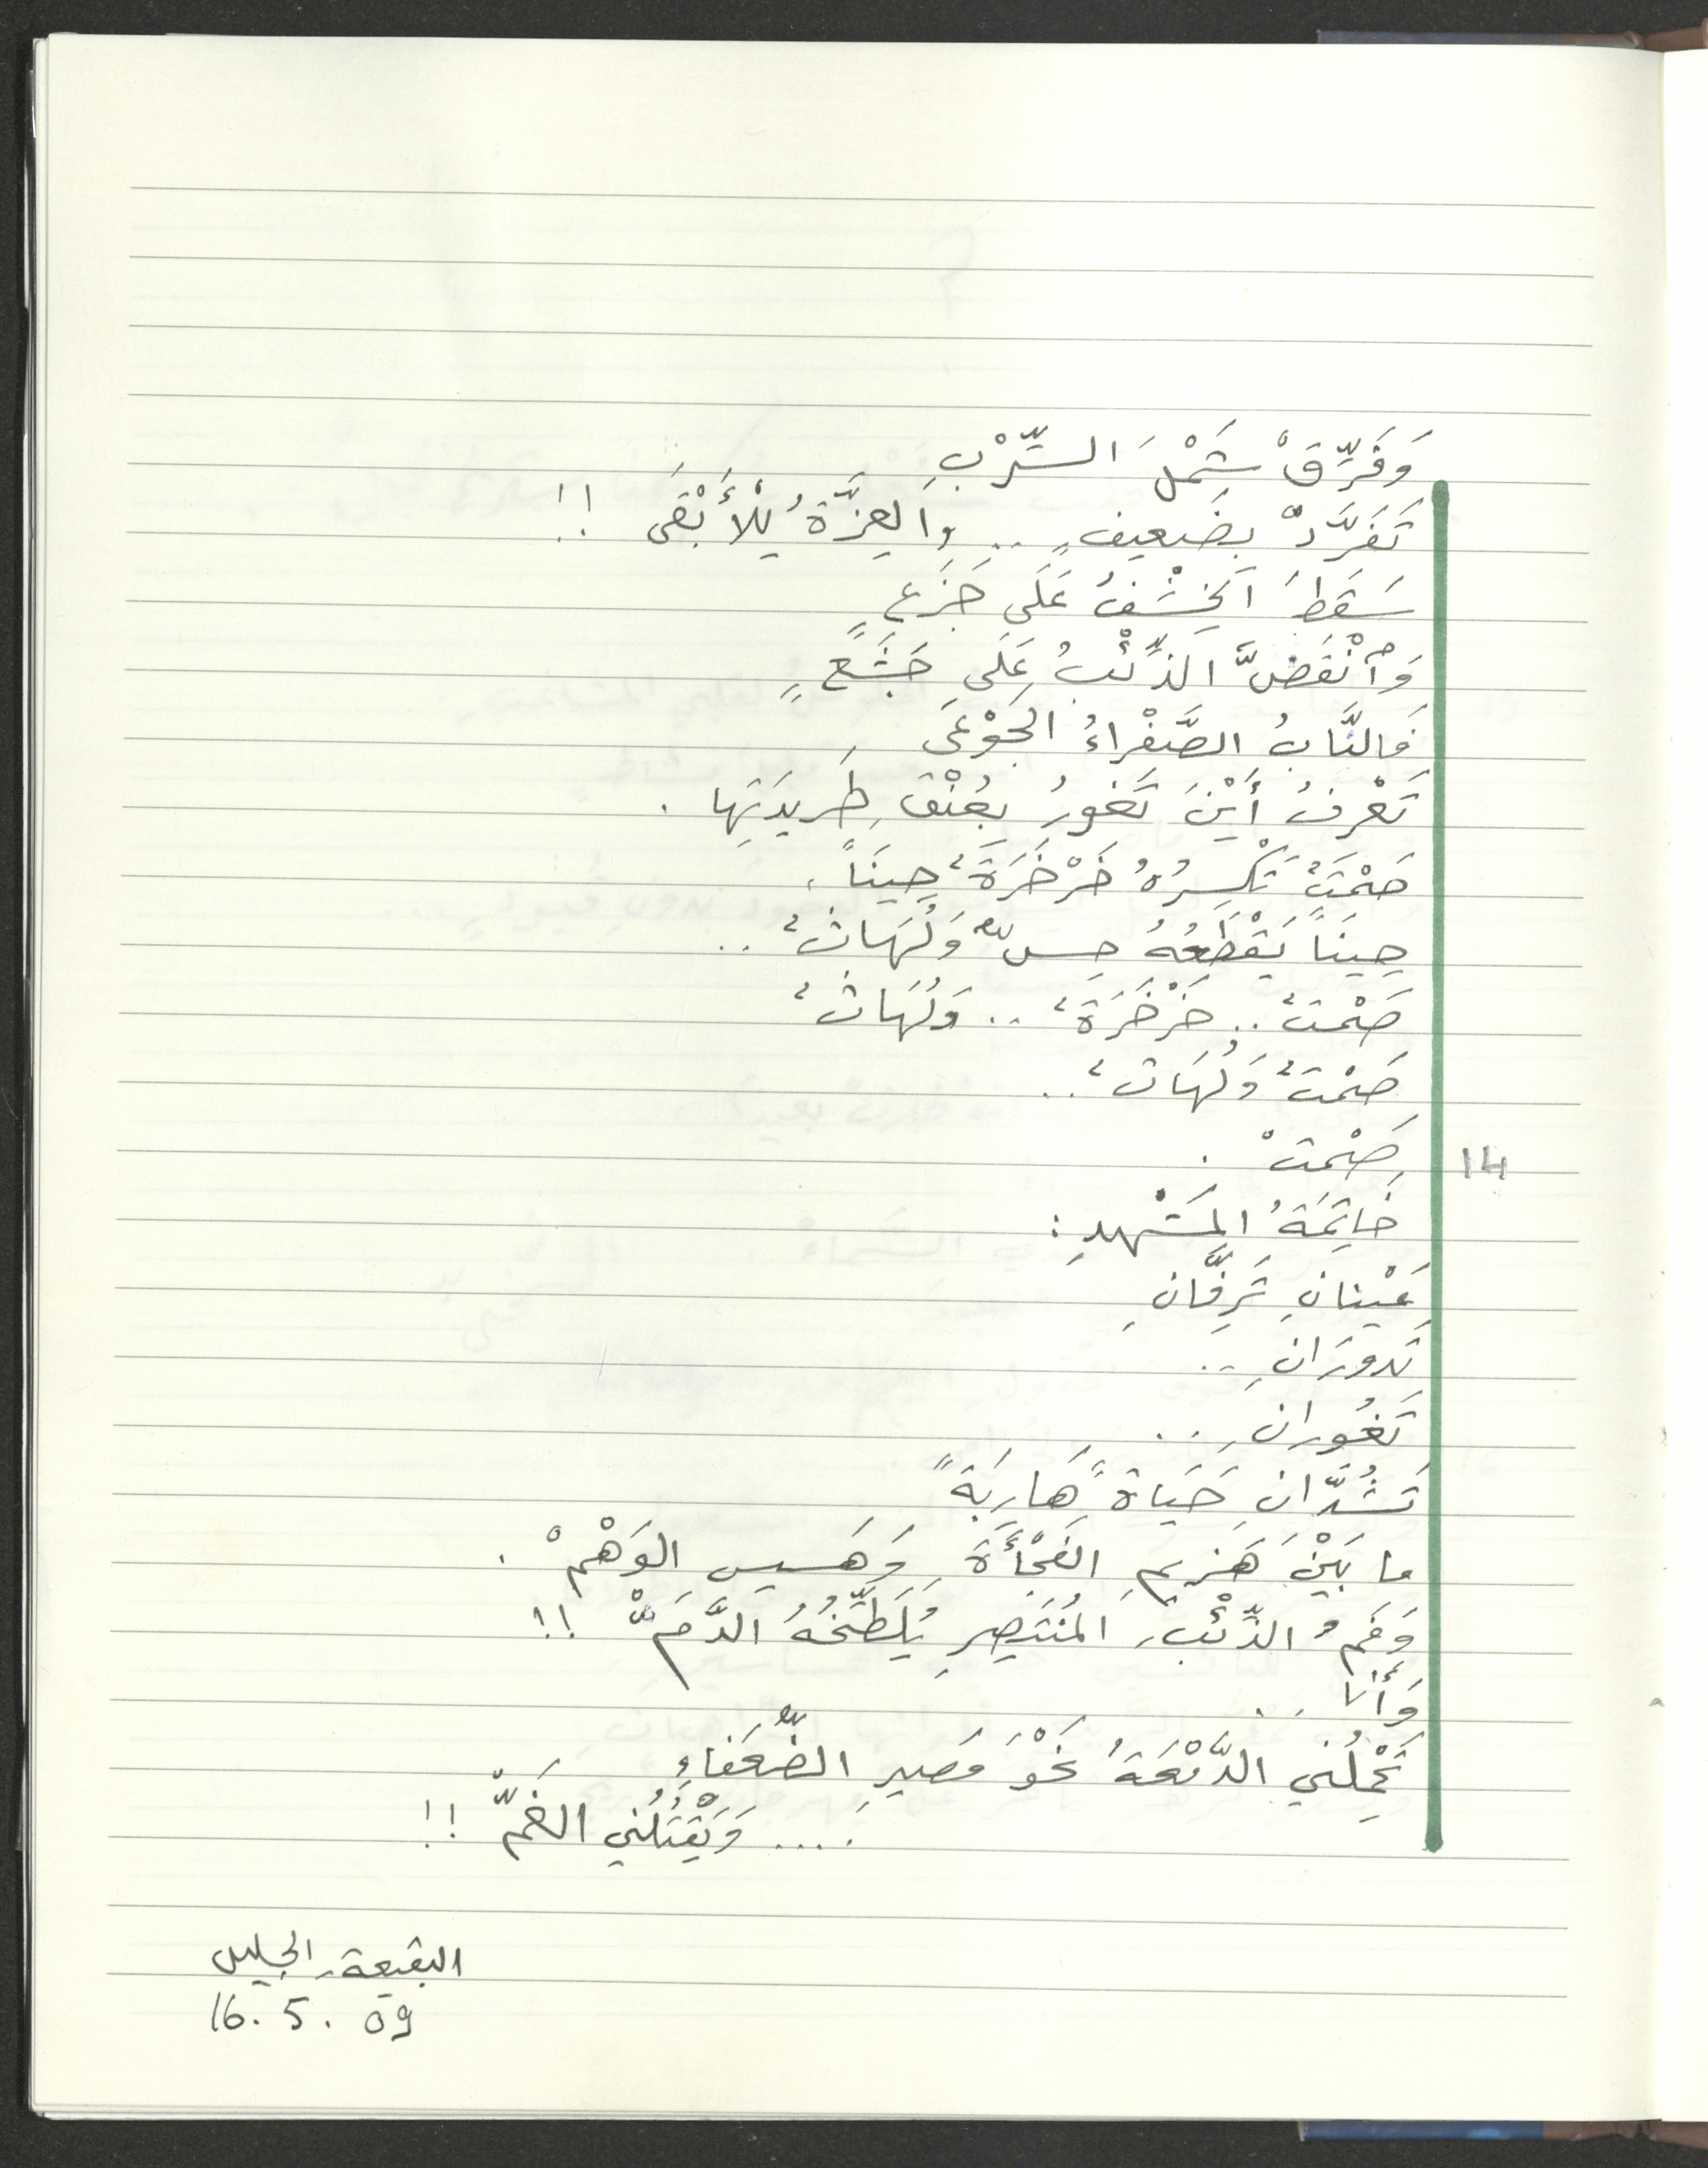 وَفَرِّقْ شَمْلَ السِّرْبِ
تَفَرَّدْ بِضَعيفٍ .. وَالعِزَّةُ لِلْأَبْقَى !!
سَقَطَ الخِشْفُ عَلَى جَزَعٍ
وَٱنْقَضَّ الذِّئْبُ عَلَى جَشَعٍ
فَالنَّابُ الصَّفْراءُ الجَوْعَى
تَعْرِفُ أَيْنَ تَغورُ بِعُنْقِ طَريدَتِها .
صَمْتٌ تَكْسِرُهُ خَرْخَرَةٌ حِينَاً،
حِينَاً يَقْطَعُهُ حِسٌّ وَلُهَاثٌ ..
صَمْتٌ .. خَرْخَرَةٌ .. وَلُهَاثٌ
صَمْتٌ وَلُهَاثٌ ..
صَمْتْ .
14
خَاتِمَةُ المَشْهَدِ :
عَيْنانِ تَرِفَّانِ
تَدورَانِ ..
تَغُورانِ ..
تَشُدّانِ حَيَاةً هَارِبَةً
ما بَيْنَ هَزيمِ الفَجْأَةِ وَهَسيسِ الوَهْمْ .
وَفَمُ الذِّئْبِ المُنْتَصِرِ يُلَطِّخُهُ الدَّمّْ !!
وَأَنا
تَحْمِلُني الدَّمْعَةُ نَحْوَ مَصيرِ الضُّعَفاءِ
.... وَيَقْتُلُني الغَمّْ !!
البقيعة - الجليل
16. 5. 09